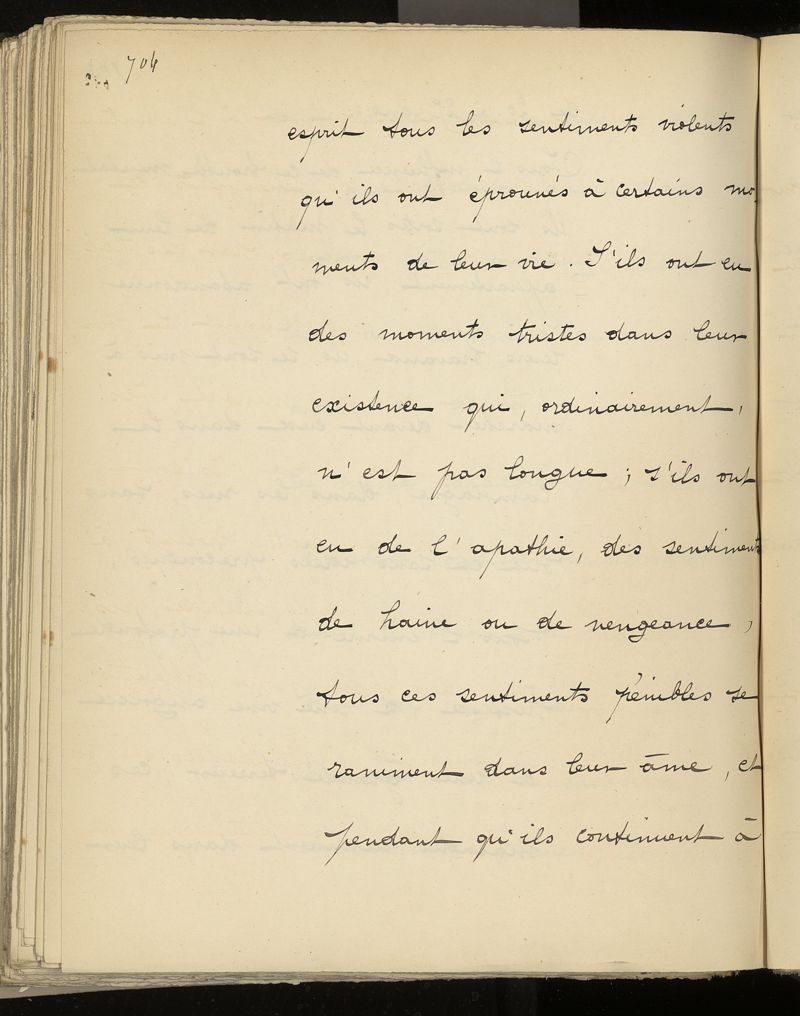 704
esprit tous les sentiments violents
qu'ils ont éprouvés à certains mo-
ments de leur vie. S'ils ont eu
des moments tristes dans leur
existence qui, ordinairement,
n'est pas longue ; s'ils ont
eu de l'apathie, des sentiments
de haine ou de vengeance,
tous ces sentiments pénibles se
raniment dans leur âme, et
pendant qu'ils continuent à